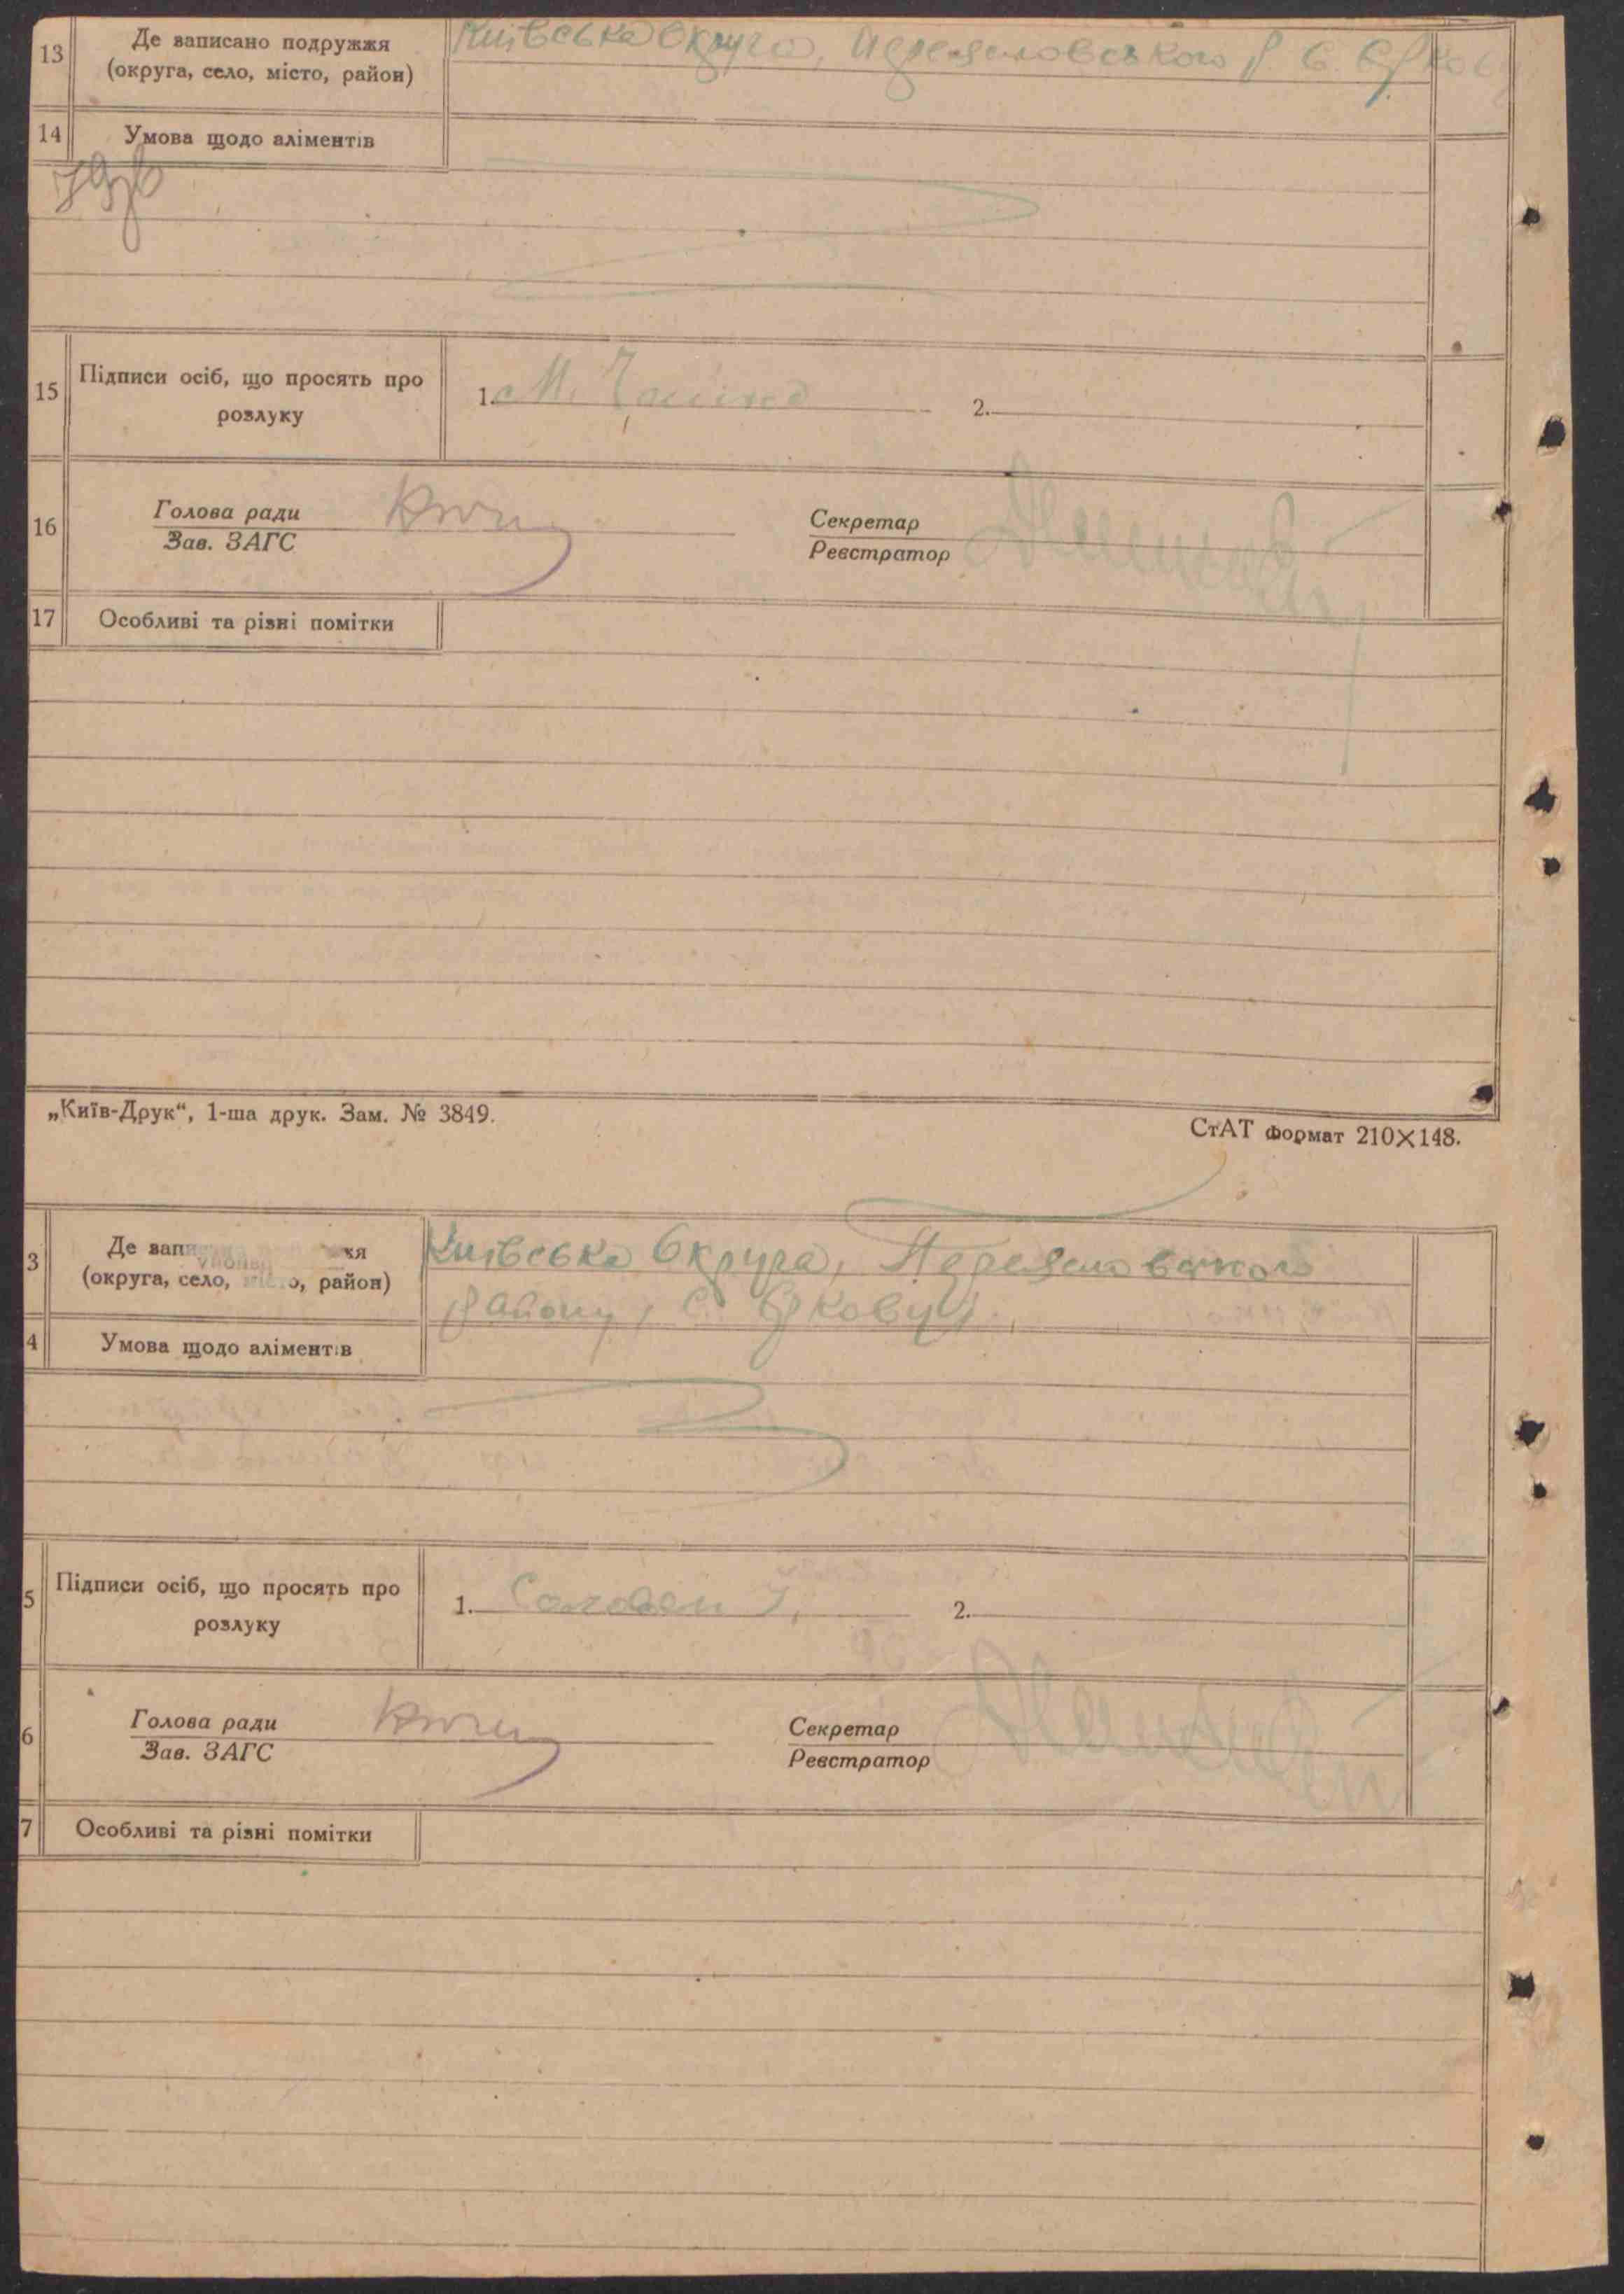 13
Де записано подружжя
(округа, село, місто, район)
Київська округа, Переяславського р. с.
14
Умова щодо аліментів
15
Підписи осіб, що просять про
розлуку
1. М.
2.
16
Голова ради
Зав. ЗАГС
Секретар
Реєстратор
17
Особливі та різні помітки
„Київ-Друк“, 1-ша друк. Зам. № 3849.
СтАТ формат 210×148.
3
Де зап жя
(округа, село, місто, район)
Київська Округа, Переяславського
району, с.
4
Умова щодо аліментів
5
Підписи осіб, що просять про
розлуку
1.
2.
6
Голова ради
Зав. ЗАГС
Секретар
Реєстратор
7
Особливі та різні помітки